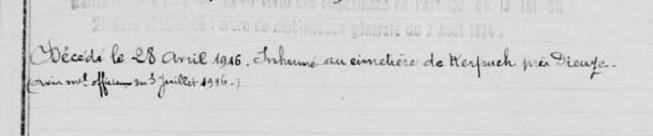 de mobilisation générale du 2 août 1914.
Décédé le 28 Avril 1916. Inhumé au cimetière de Kerpuch près Dieuze.
(Avis mel officiem du 3 Juillet 1916.)